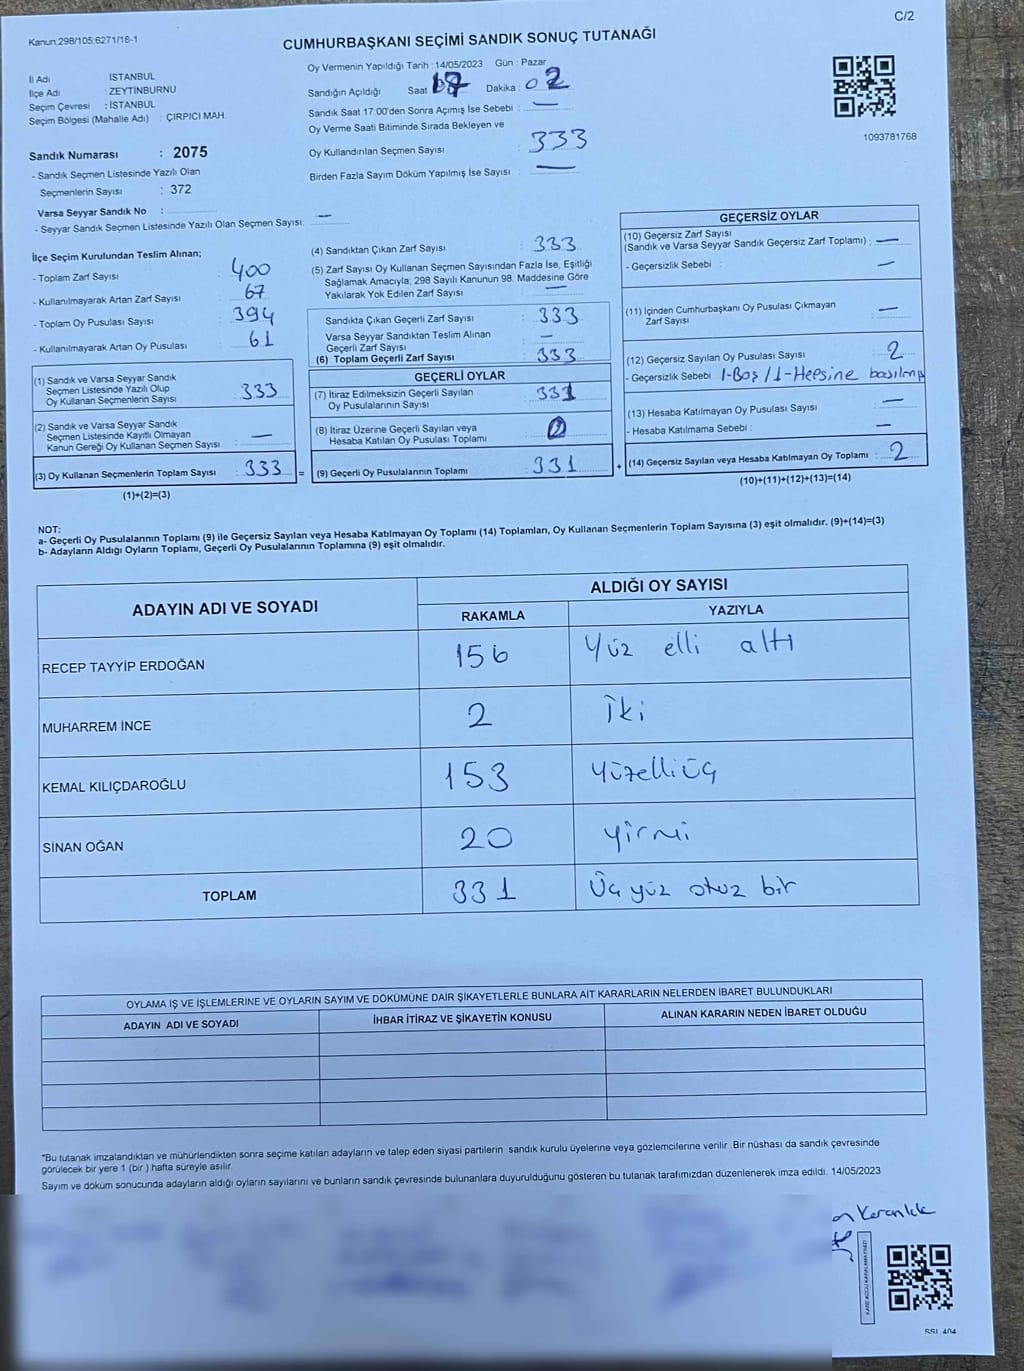 C/2
Kanun:298/105;6271/18-1
CUMHURBAŞKANI SEÇİMİ SANDIK SONUÇ TUTANAĞI
İl Adı İSTANBUL
İlçe Adı : ZEYTİNBURNU
Seçim Çevresi : İSTANBUL
Seçim Bölgesi (Mahalle Adı) : ÇIRPICI MAH.
Sandık Numarası : 2075
- Sandık Seçmen Listesinde Yazılı Olan
Seçmenlerin Sayısı : 372
Varsa Seyyar Sandık No :
- Seyyar Sandık Seçmen Listesinde Yazılı Olan Seçmen Sayısı: —
Oy Vermenin Yapıldığı Tarih : 14/05/2023 Gün : Pazar
Sandığın Açıldığı Saat Dakika : 02
Sandık Saat 17:00'den Sonra Açımış İse Sebebi : —
Oy Verme Saati Bitiminde Sırada Bekleyen ve
Oy Kullandırılan Seçmen Sayısı : 333
Birden Fazla Sayım Döküm Yapılmış İse Sayısı : —
1093781768
İlçe Seçim Kurulundan Teslim Alınan;
- Toplam Zarf Sayısı : 400
- Kullanılmayarak Artan Zarf Sayısı : 67
- Toplam Oy Pusulası Sayısı : 394
- Kullanılmayarak Artan Oy Pusulası : 61
(1) Sandık ve Varsa Seyyar Sandık
Seçmen Listesinde Yazılı Olup
Oy Kullanan Seçmenlerin Sayısı : 333
(2) Sandık ve Varsa Seyyar Sandık
Seçmen Listesinde Kayıtlı Olmayan
Kanun Gereği Oy Kullanan Seçmen Sayısı : —
(3) Oy Kullanan Seçmenlerin Toplam Sayısı : 333 =
(1)+(2)=(3)
(4) Sandıktan Çıkan Zarf Sayısı : 333
(5) Zarf Sayısı Oy Kullanan Seçmen Sayısından Fazla İse, Eşitliği
Sağlamak Amacıyla; 298 Sayılı Kanunun 98. Maddesine Göre
Yakılarak Yok Edilen Zarf Sayısı : —
Sandıkta Çıkan Geçerli Zarf Sayısı : 333
Varsa Seyyar Sandıktan Teslim Alınan
Geçerli Zarf Sayısı : —
(6) Toplam Geçerli Zarf Sayısı : 333
GEÇERLİ OYLAR
(7) İtiraz Edilmeksizin Geçerli Sayılan
Oy Pusulalarının Sayısı : 331
(8) İtiraz Üzerine Geçerli Sayılan veya
Hesaba Katılan Oy Pusulası Toplamı :
(9) Geçerli Oy Pusulalarının Toplamı : 331 +
GEÇERSİZ OYLAR
(10) Geçersiz Zarf Sayısı
(Sandık ve Varsa Seyyar Sandık Geçersiz Zarf Toplamı) : —
- Geçersizlik Sebebi : —
(11) İçinden Cumhurbaşkanı Oy Pusulası Çıkmayan
Zarf Sayısı : —
(12) Geçersiz Sayılan Oy Pusulası Sayısı : 2
- Geçersizlik Sebebi 1-Boş / 1-Hepsine basılmış
(13) Hesaba Katılmayan Oy Pusulası Sayısı : —
- Hesaba Katılmama Sebebi : —
(14) Geçersiz Sayılan veya Hesaba Katılmayan Oy Toplamı : 2
(10)+(11)+(12)+(13)=(14)
NOT:
a- Geçerli Oy Pusulalarının Toplamı (9) ile Geçersiz Sayılan veya Hesaba Katılmayan Oy Toplamı (14) Toplamları, Oy Kullanan Seçmenlerin Toplam Sayısına (3) eşit olmalıdır. (9)+(14)=(3)
b- Adayların Aldığı Oyların Toplamı, Geçerli Oy Pusulalarının Toplamına (9) eşit olmalıdır.
ADAYIN ADI VE SOYADI ALDIĞI OY SAYISI
RAKAMLA YAZIYLA
RECEP TAYYİP ERDOĞAN 156 Yüz elli altı
MUHARREM İNCE 2 İki
KEMAL KILIÇDAROĞLU 153 Yüzelliüç
SİNAN OĞAN 20 yirmi
TOPLAM 331 Üç yüz otuz bir
OYLAMA İŞ VE İŞLEMLERİNE VE OYLARIN SAYIM VE DÖKÜMÜNE DAİR ŞİKAYETLERLE BUNLARA AİT KARARLARIN NELERDEN İBARET BULUNDUKLARI
ADAYIN ADI VE SOYADI İHBAR İTİRAZ VE ŞİKAYETİN KONUSU ALINAN KARARIN NEDEN İBARET OLDUĞU
*Bu tutanak imzalandıktan ve mühürlendikten sonra seçime katılan adayların ve talep eden siyasi partilerin sandık kurulu üyelerine veya gözlemcilerine verilir. Bir nüshası da sandık çevresinde
görülecek bir yere 1 (bir ) hafta süreyle asılır.
Sayım ve döküm sonucunda adayların aldığı oyların sayılarını ve bunların sandık çevresinde bulunanlara duyurulduğunu gösteren bu tutanak tarafımızdan düzenlenerek imza edildi. 14/05/2023
Karanlık
SSI_404